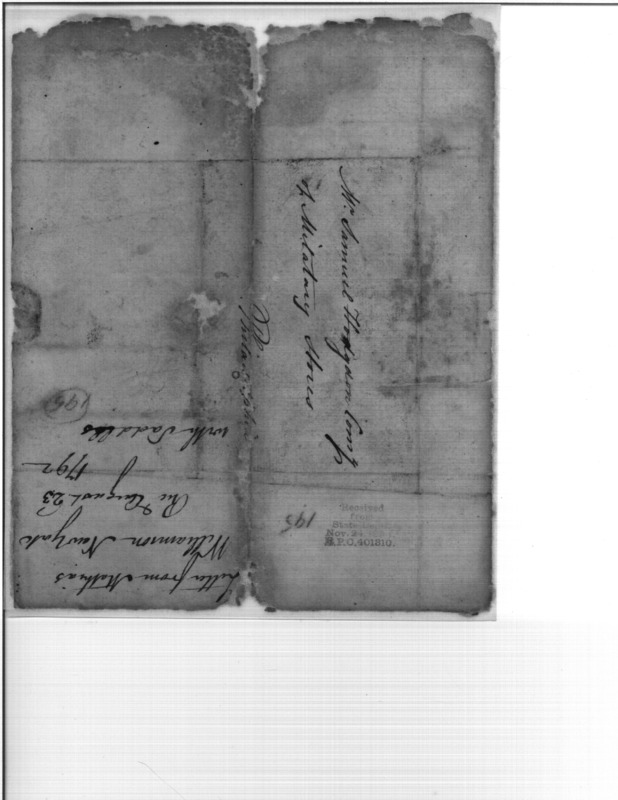 Mr. Samuel Hodgdon Comy
of Military Stores
Philadelphia
Letter from Mathias
Williamson New York
Rec August 23
1792
with Saddles
195
195
Received
from
State
Nov. 24
R.P.O. 401810.